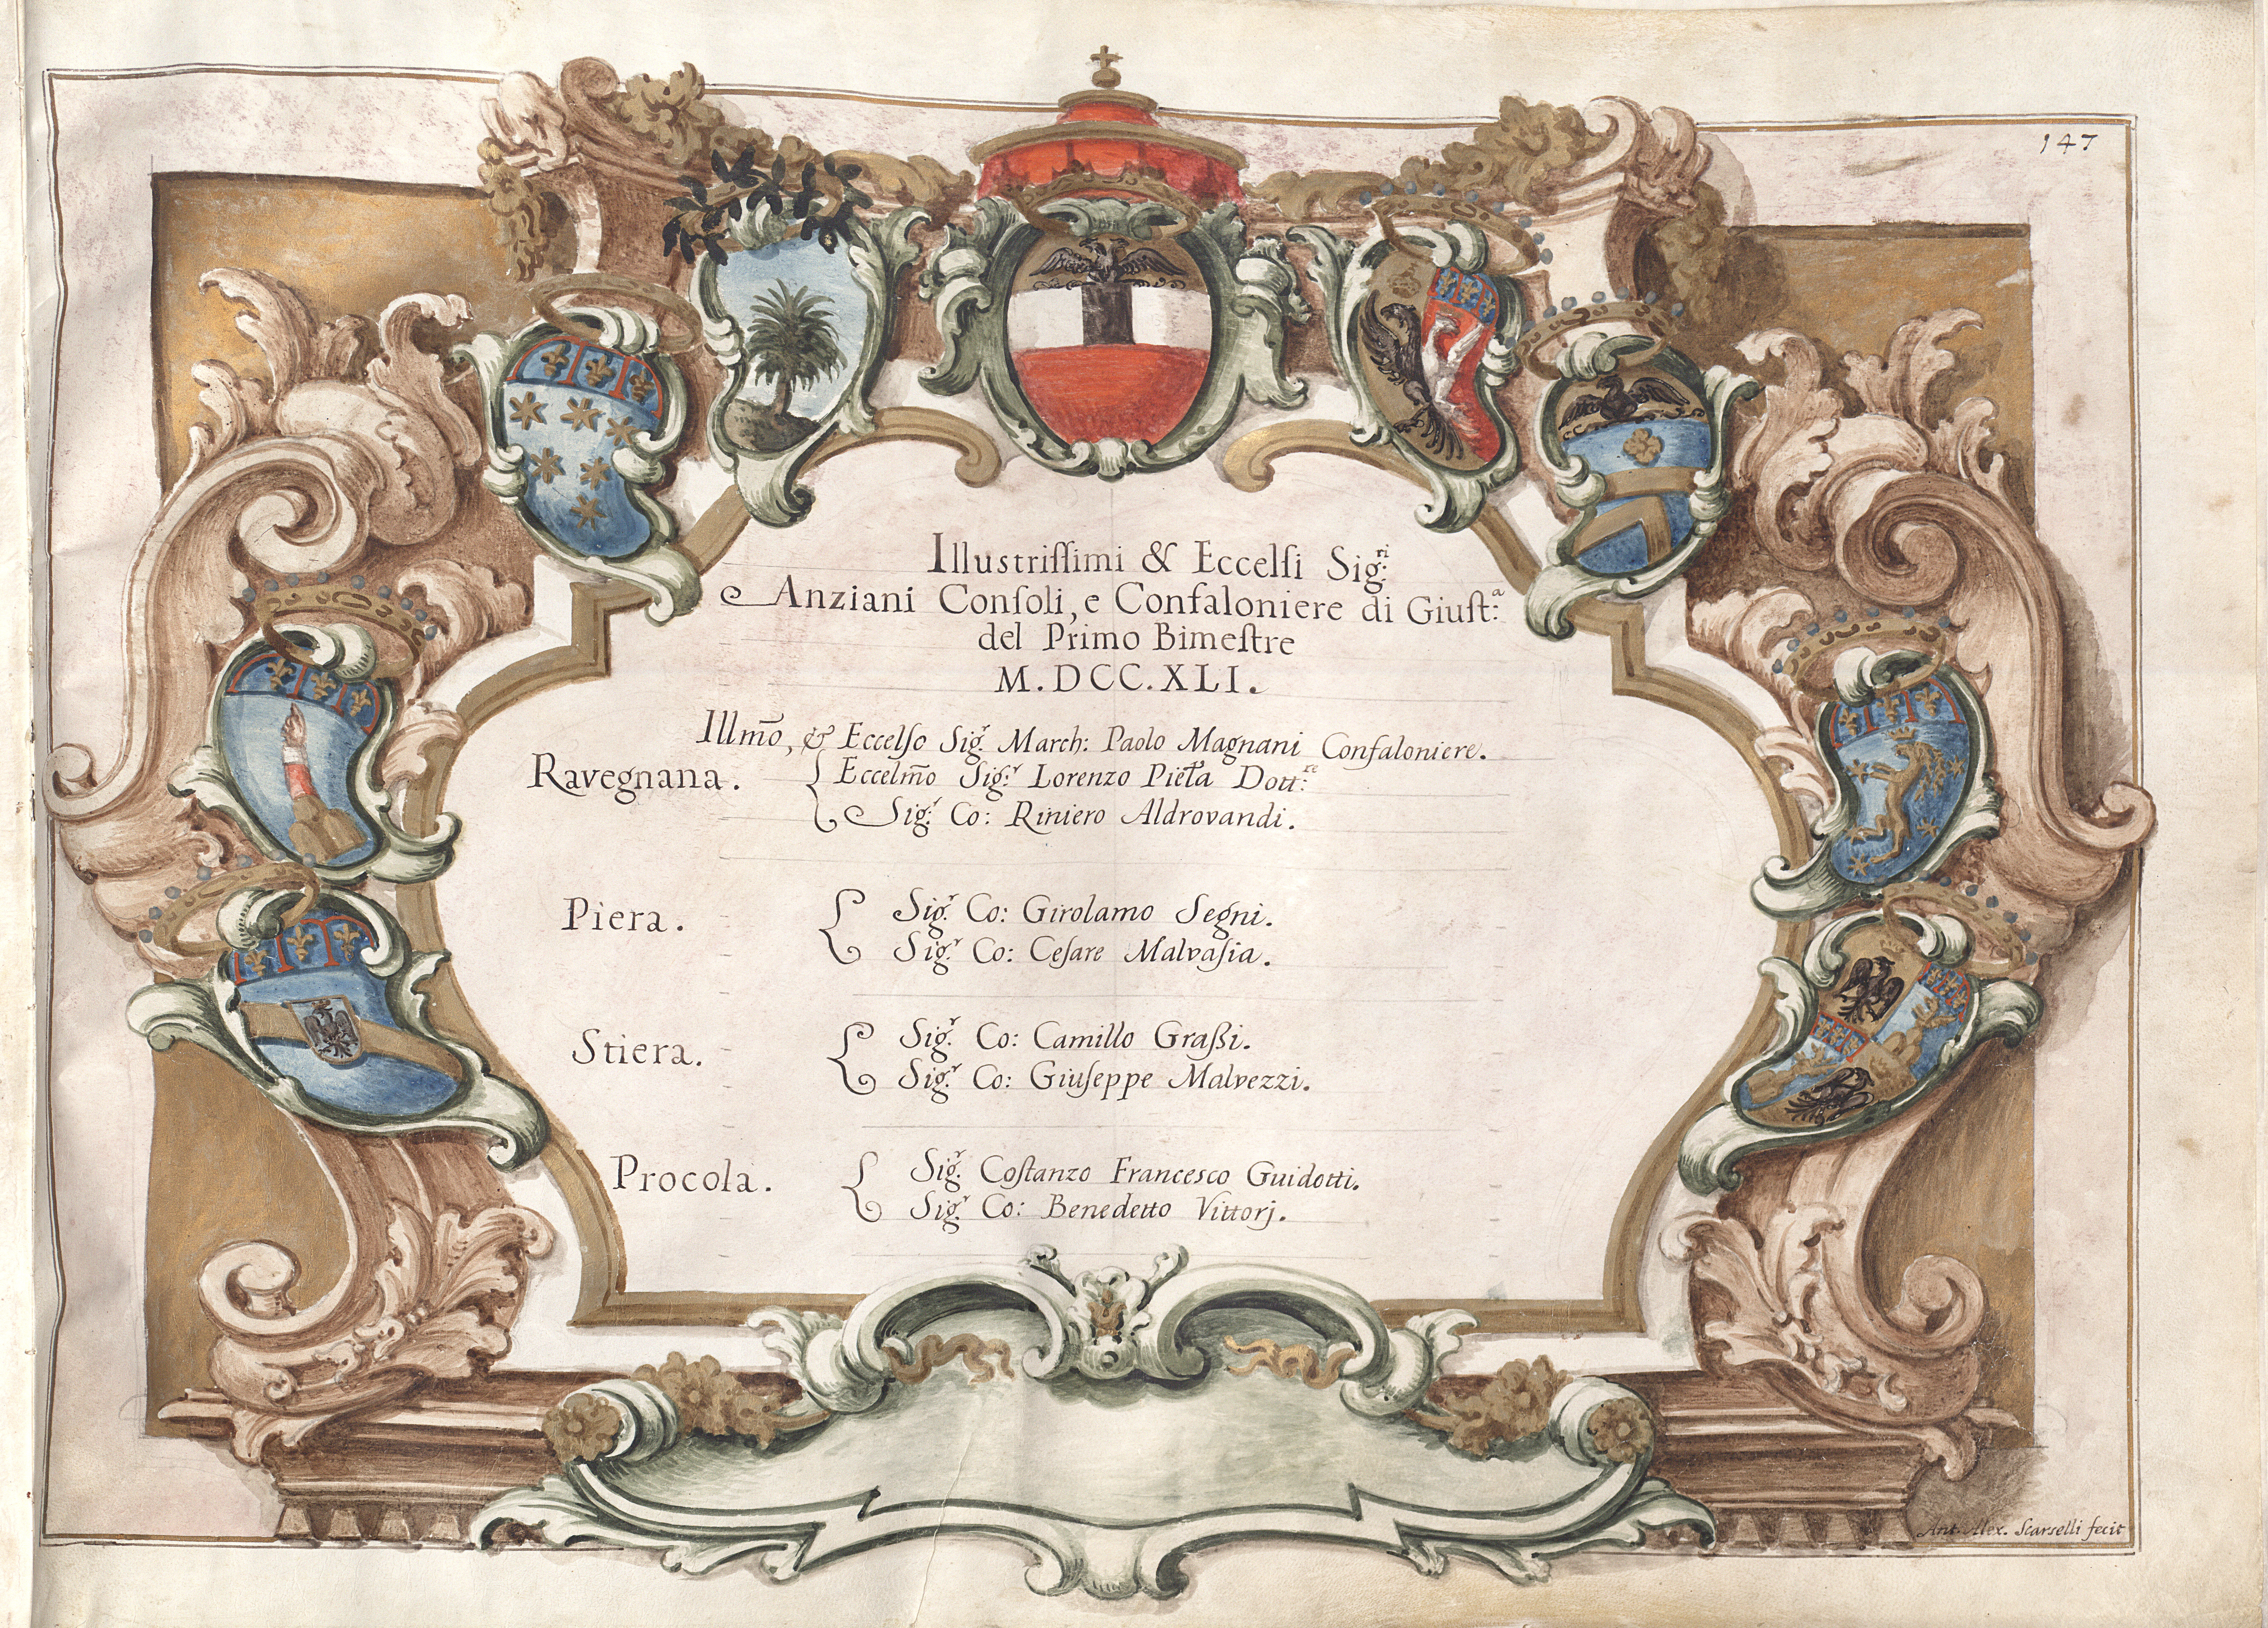 147
Illustriſſimi & Eccelſi Sig.ri
Anziani Conſoli, e Confaloniere di Giuſt:a
del Primo Bimeſtre
M.DCC.XLI.
Illm̃o, & Eccelſo Sig.r March: Paolo Magnani Confaloniere.
Ravegnana. { Eccelm̃o Sig.r Lorenzo Dott:re
Sig.r Co: Riniero Aldrovandi.
Piera. { Sig.r Co: Girolamo Segni.
Sig.r Co: Ceſare Malvaſia.
Stiera. { Sig.r Co: Camillo Graßi.
Sig.r Co: Giuſeppe Malvezzi.
Procola. { Sig.r Coſtanzo Francesco Guidotti.
Sig.r Co: Benedetto Vittorj.
Ant. Alex. Scarselli fecit